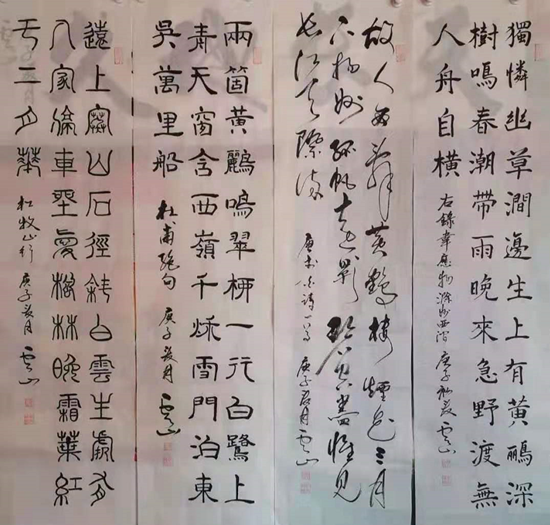 獨憐幽草澗邊生上有黃鸝深
樹鳴春潮帶雨晚來急野渡無
人舟自橫 右錄韋應物滁州西澗 庚子初夏 雲山
故人西辭黃鶴樓煙花三月
下揚州孤帆遠影碧空盡惟見
長江天際流 唐李白詩一首 庚子夏月 雲山
兩箇黃鸝鳴翠柳一行白鷺上
青天窗含西嶺千秋雪門泊東
吳萬里船 杜甫絕句 庚子夏月 雲山
遠上寒山石徑斜白雲生處有
人家停車坐愛楓林晚霜葉紅
于二月華 杜牧山行 庚子夏月 雲山